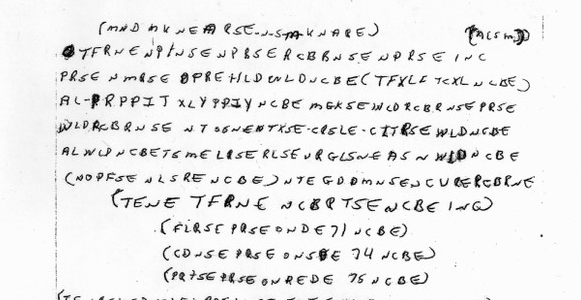 (MND MKNEARSE-N-S-M-KNARE) (ACSM)
TFRNENPINSENPBSERCBBNSENPRSEINC
PRSENMRSEOPREHLDWLDNCBE(TFXLFTCXLNCBE)
AL-PRPPIT XLYPPIYNCBE MGKSEWLDRCBRNSEPRSE
WLDRCBRNSE NTSSNENTXSE-CRSLE-CITRSE WLDNCBE
ALWLDNCBETSMELRSERLSEURGLSNEASNWLDNCBE
(NOPFSENLSRENCBE)NTEGDDMNSENCURERCBRNE
(TENE TFRNE NCBRTSENCBEING)
(FLRSEPRSEONDE71NCBE)
(CDNSEPRSEONSDE74NCBE)
(PRTSEPRSEONREDE75NCBE)